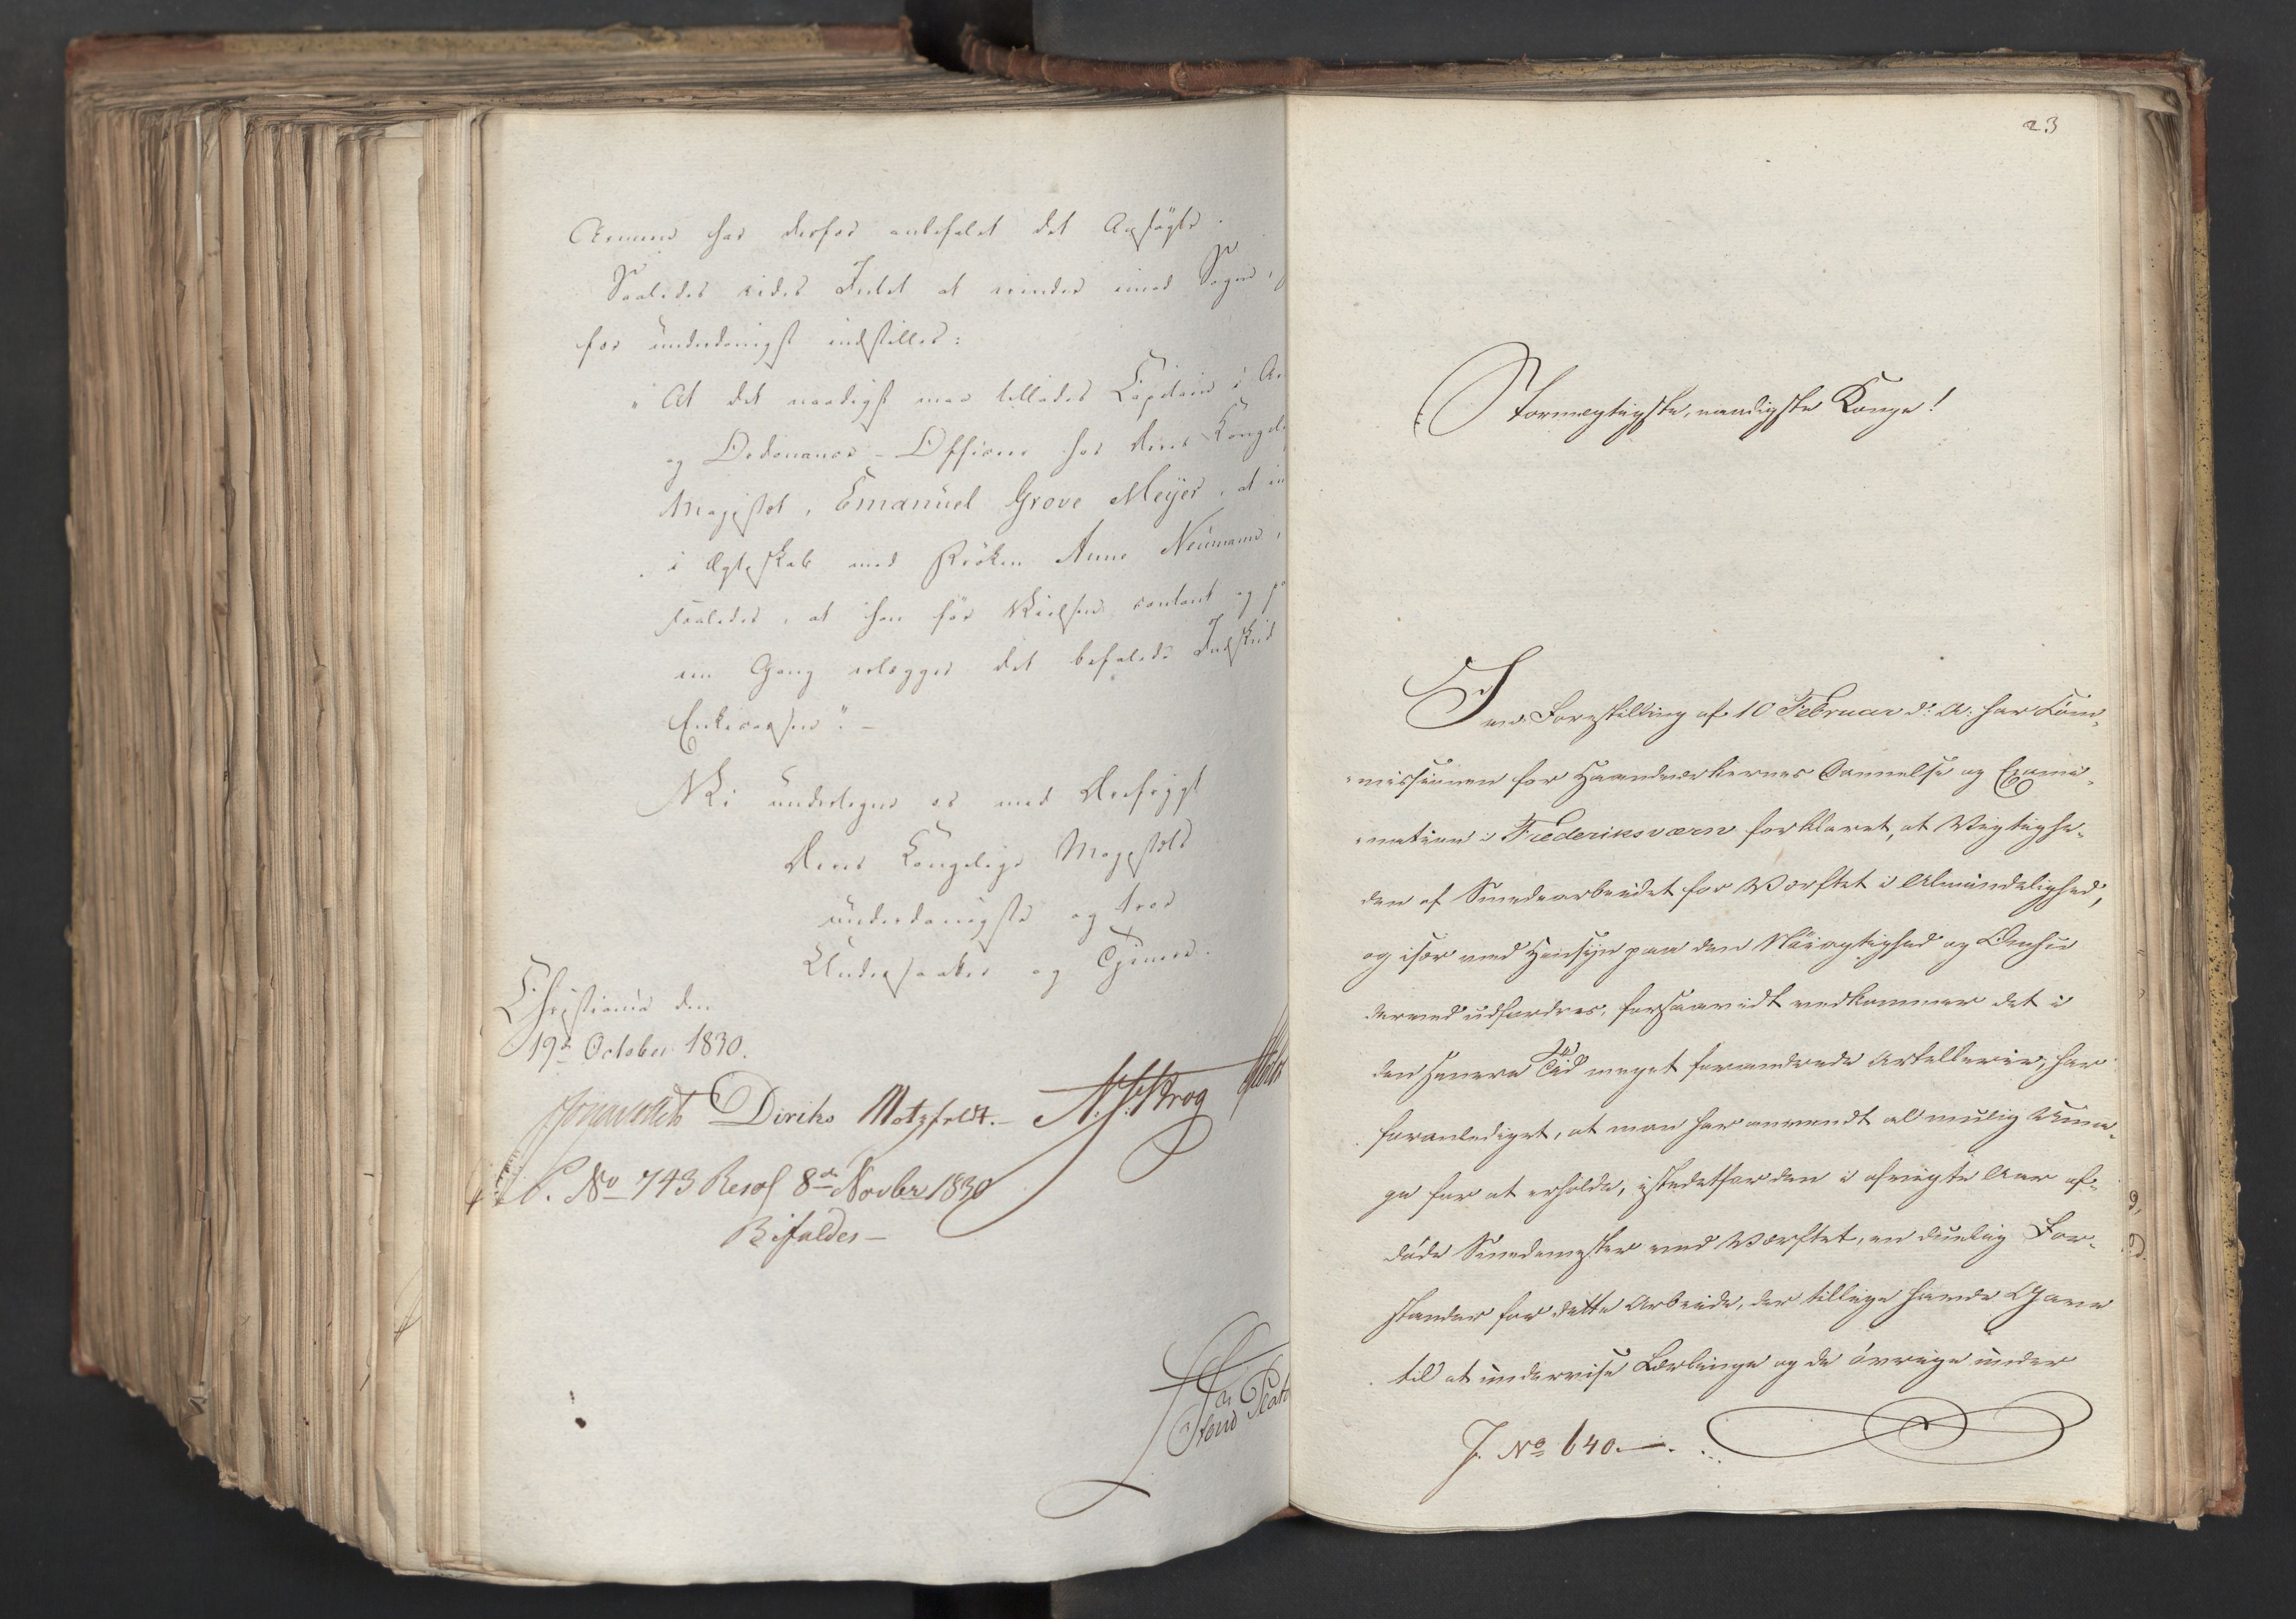 Armeen har derfor anbefalet det Ansøgte.
Saaledes vides Intet at erindre imod Sagen,
for underdanigst indstilles:
"At det naadigst maa tillades Capitain i Ar
og Ordonance-Officeer hos Deres Kongel
Majestet, Emanuel Grove Meijer, at in
i Ægteskab med Frøken Anne Neumann,
saaledes, at han før Vielsen contant og p
een Gang erlægger det befalede Indskud
Enkecassen". –
Vi undertegne os med Ærefrygt
Deres Kongelige Majestæts
underdanigste og troe
Undersaatter og Tjenere.
Christiania den
19de October 1830.
Diriks Motzfeldt.– N. J. Krog
P. No 743 Resol 8de Novber 1830
Bifaldes –
23
Stormægtigste, naadigste Konge!
I en Forestilling af 10 Februar d: A: har Com-
missionen for Haandværkernes Dannelse og Exami-
nation i Frederiksværn forklaret, at Vigtighe-
den af Smedearbeidet for Værftet i Almindelighed,
og især med Hensyn paa den Nöiagtighed og Omhu
dermed udfordres, forsaavidt vedkommer det i
den senere Tid meget forandrede Artillerie, har
foranlediget, at man har anvendt al mulig Umа-
ge for at erholde, istedetfor den i afvigte Aar af-
döde Smedemester ved Værftet, en duelig For-
stander for dette Arbeide, der tillige havde Gave
til at undervise Lærlinge og de övrige under
J. No 640.–.